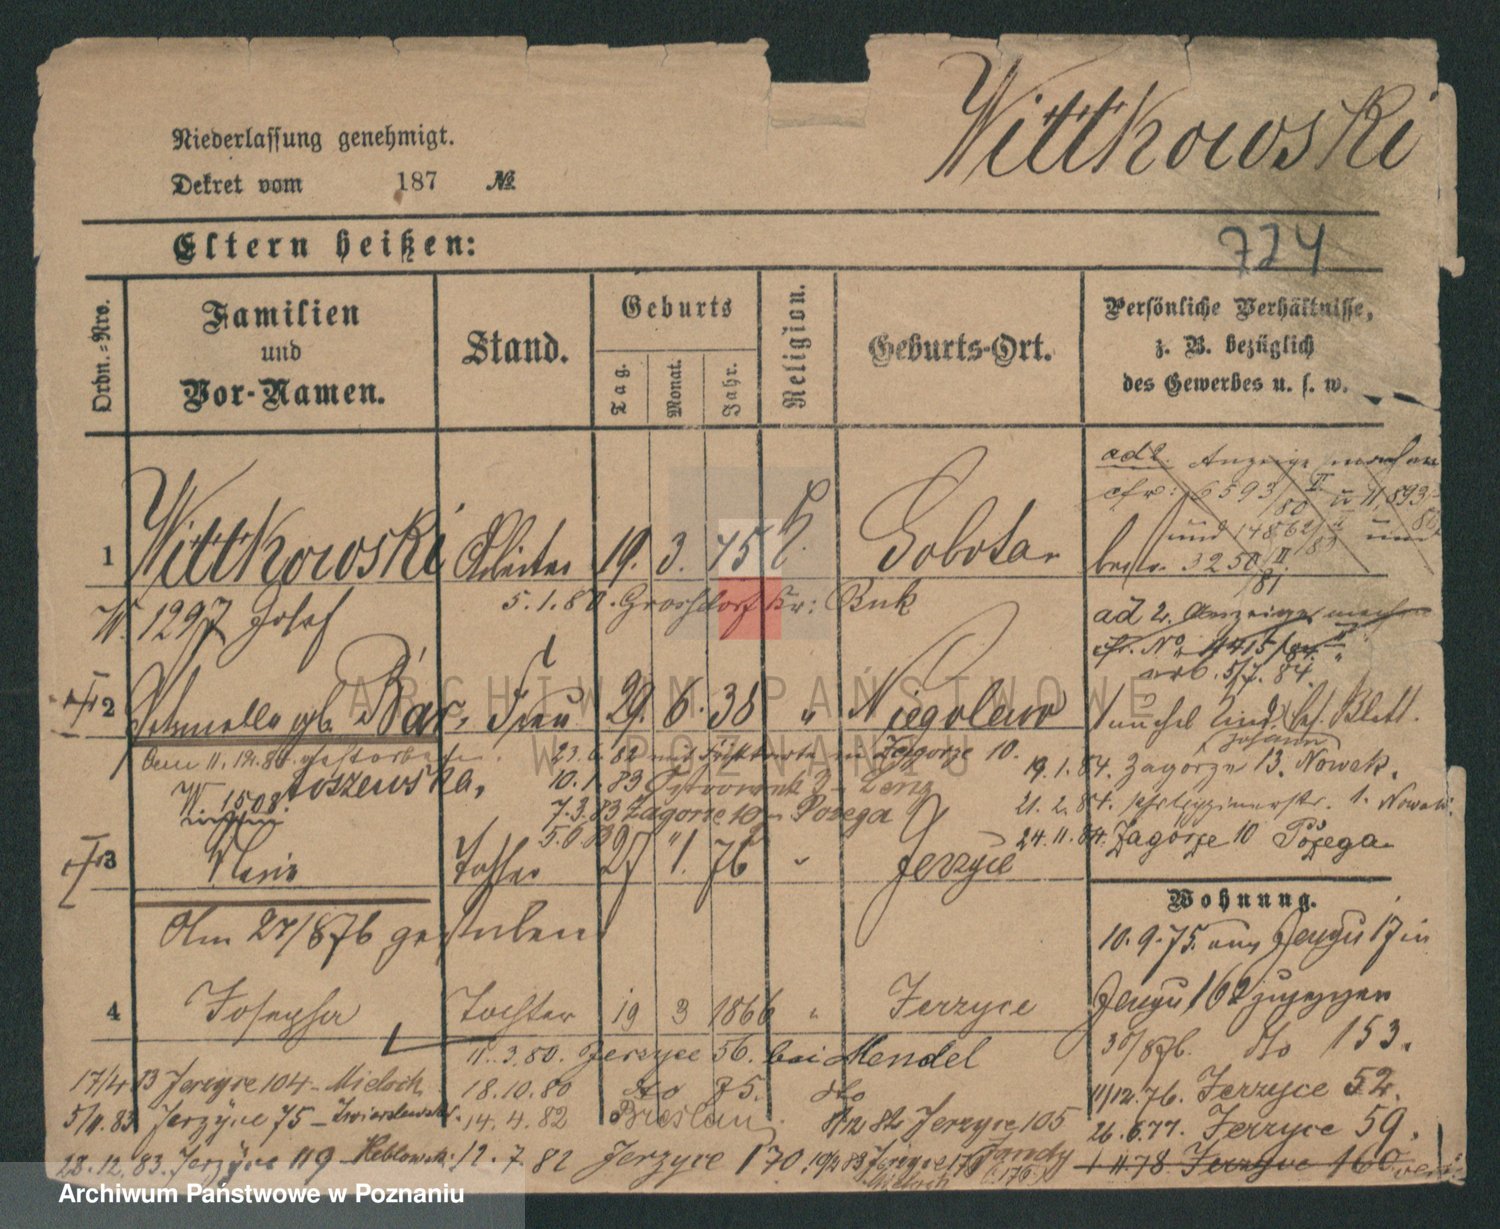 Wittkowski
Niederlassung genehmigt.
Dekret vom 187 №
724
Eltern heißen:
Ordn.-Nro.
Familien
und
Vor-Namen.
Stand.
Geburts
Tag.
Monat.
Jahr.
Religion.
Geburts-Ort.
Persönliche Verhältnisse,
z. B. bezüglich
des Gewerbes u. s. w.
1 Wittkowski Arbeiter 19. 3. 45 k. Sobota
ad 2. Anzeige machen
cfr: 6593/80 II u 11,893
und
3250 II/81
W. 1297 Josef
5.1.80. Grossdorf Kr: Buk
ad 2. Anzeige machen
cfr. №
5/7. 84.
2 Petronella geb. Bar, Frau 29. 6. 38 " Niegolewo
Blatt.
Am 11.12.84 gestorben.
Toszewska,
W. 1508
23.6.82 Zagorze 10.
10.1.83
7.3.83 Zagorze 10 Pozega
19.1.84. Zagorze 13. Nowak.
21.2.84. 1. Nowak
24.11.84. Zagorze 10 Pozega
3 Maria Tochter 27 1. 76 " Jerzyce
Am 27/8 76 gestorben
Wohnung.
10.9.75. aus Jerzyce 17 in
Jerzyce 162 zugezogen
4 Josepha Tochter 19 3 1866 " Jerzyce
30/8 76. dto 153.
11.3.80. Jerzyce 56. bei Mendel
17/4 83 Jerzyce 104 - Mieloch
18.10.80 dto 75. dto
11/12.76. Jerzyce 52.
5/11.83. Jerzyce 75 -
14.4.82 Breslau
8/12 82 Jerzyce 105
26.6.77. Jerzyce 59.
28.12.83. Jerzyce 119
12.7.82 Jerzyce 170.
Jerzyce 170
Mieloch
Jandy
1.11.78 Jerzyce 160
ARCHIWUM PAŃSTWOWE
W POZNANIU
Archiwum Państwowe w Poznaniu